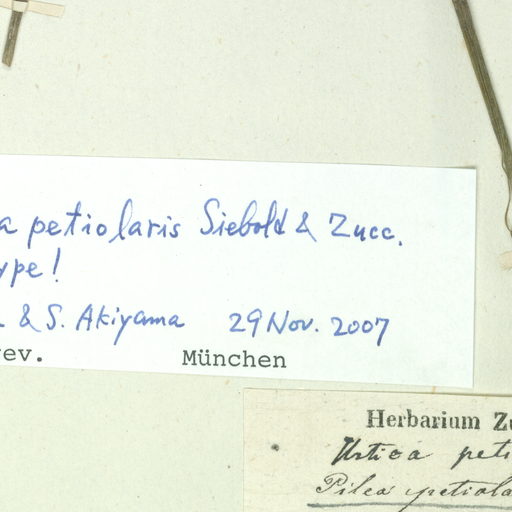 a petiolaris Siebold & Zucc.
ype!
& S. Akiyama 29 Nov. 2007
rev. München
Herbarium Zu
Urtica peti
Pilea petiola